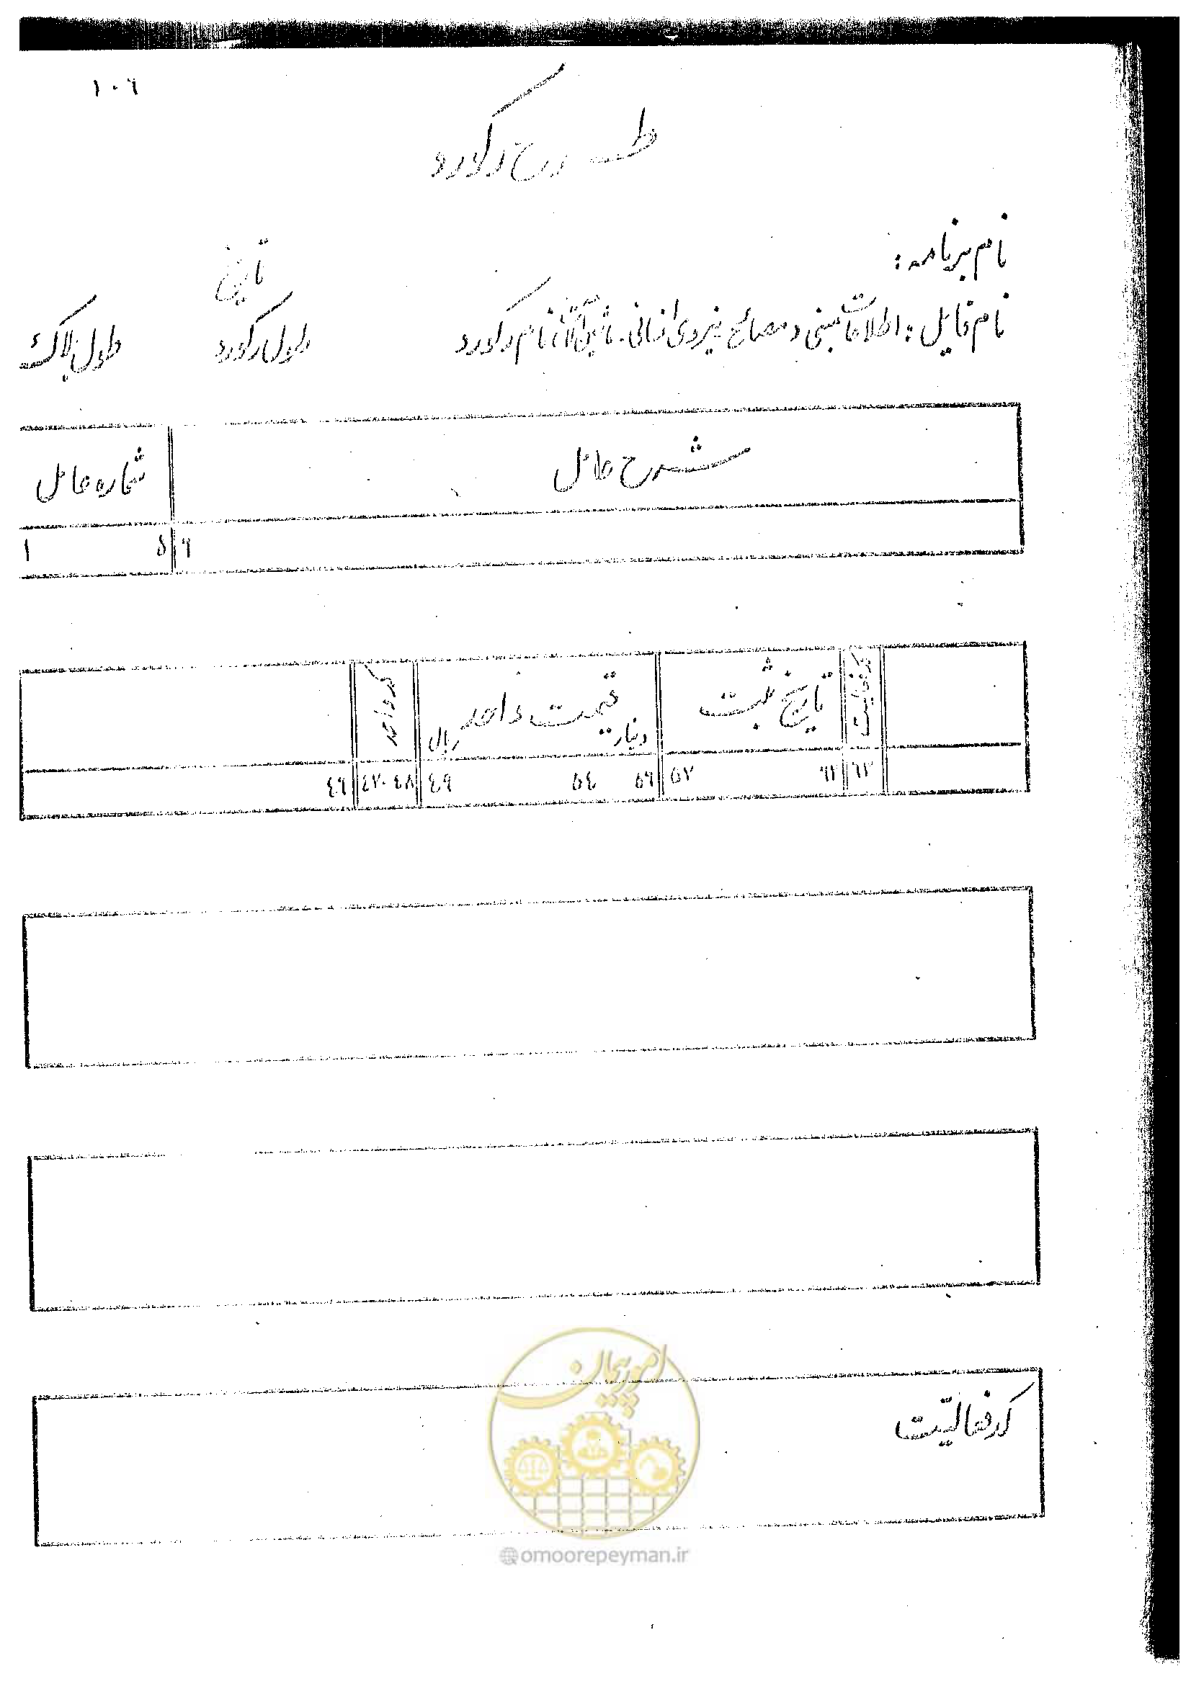 ۱۰۶
طرح رکورد
نام برنامه :
تاریخ
نام فایل : اطلاعات مبنی و مصالح نیروی انسانی - ماشین آلات نام رکورد
طول رکورد
طول بلاک
شرح عامل
شماره عامل
۱ ۵ ۶
کد فعالیت
تاریخ ثبت
قیمت واحد
دینار ریال
کد واحد
۴۶ ۴۷-۴۸ ۴۹ ۵۴ ۵۶ ۵۷ ۶۲ ۶۳
کد فعالیت
امور پیمان
@omoorepeyman.ir